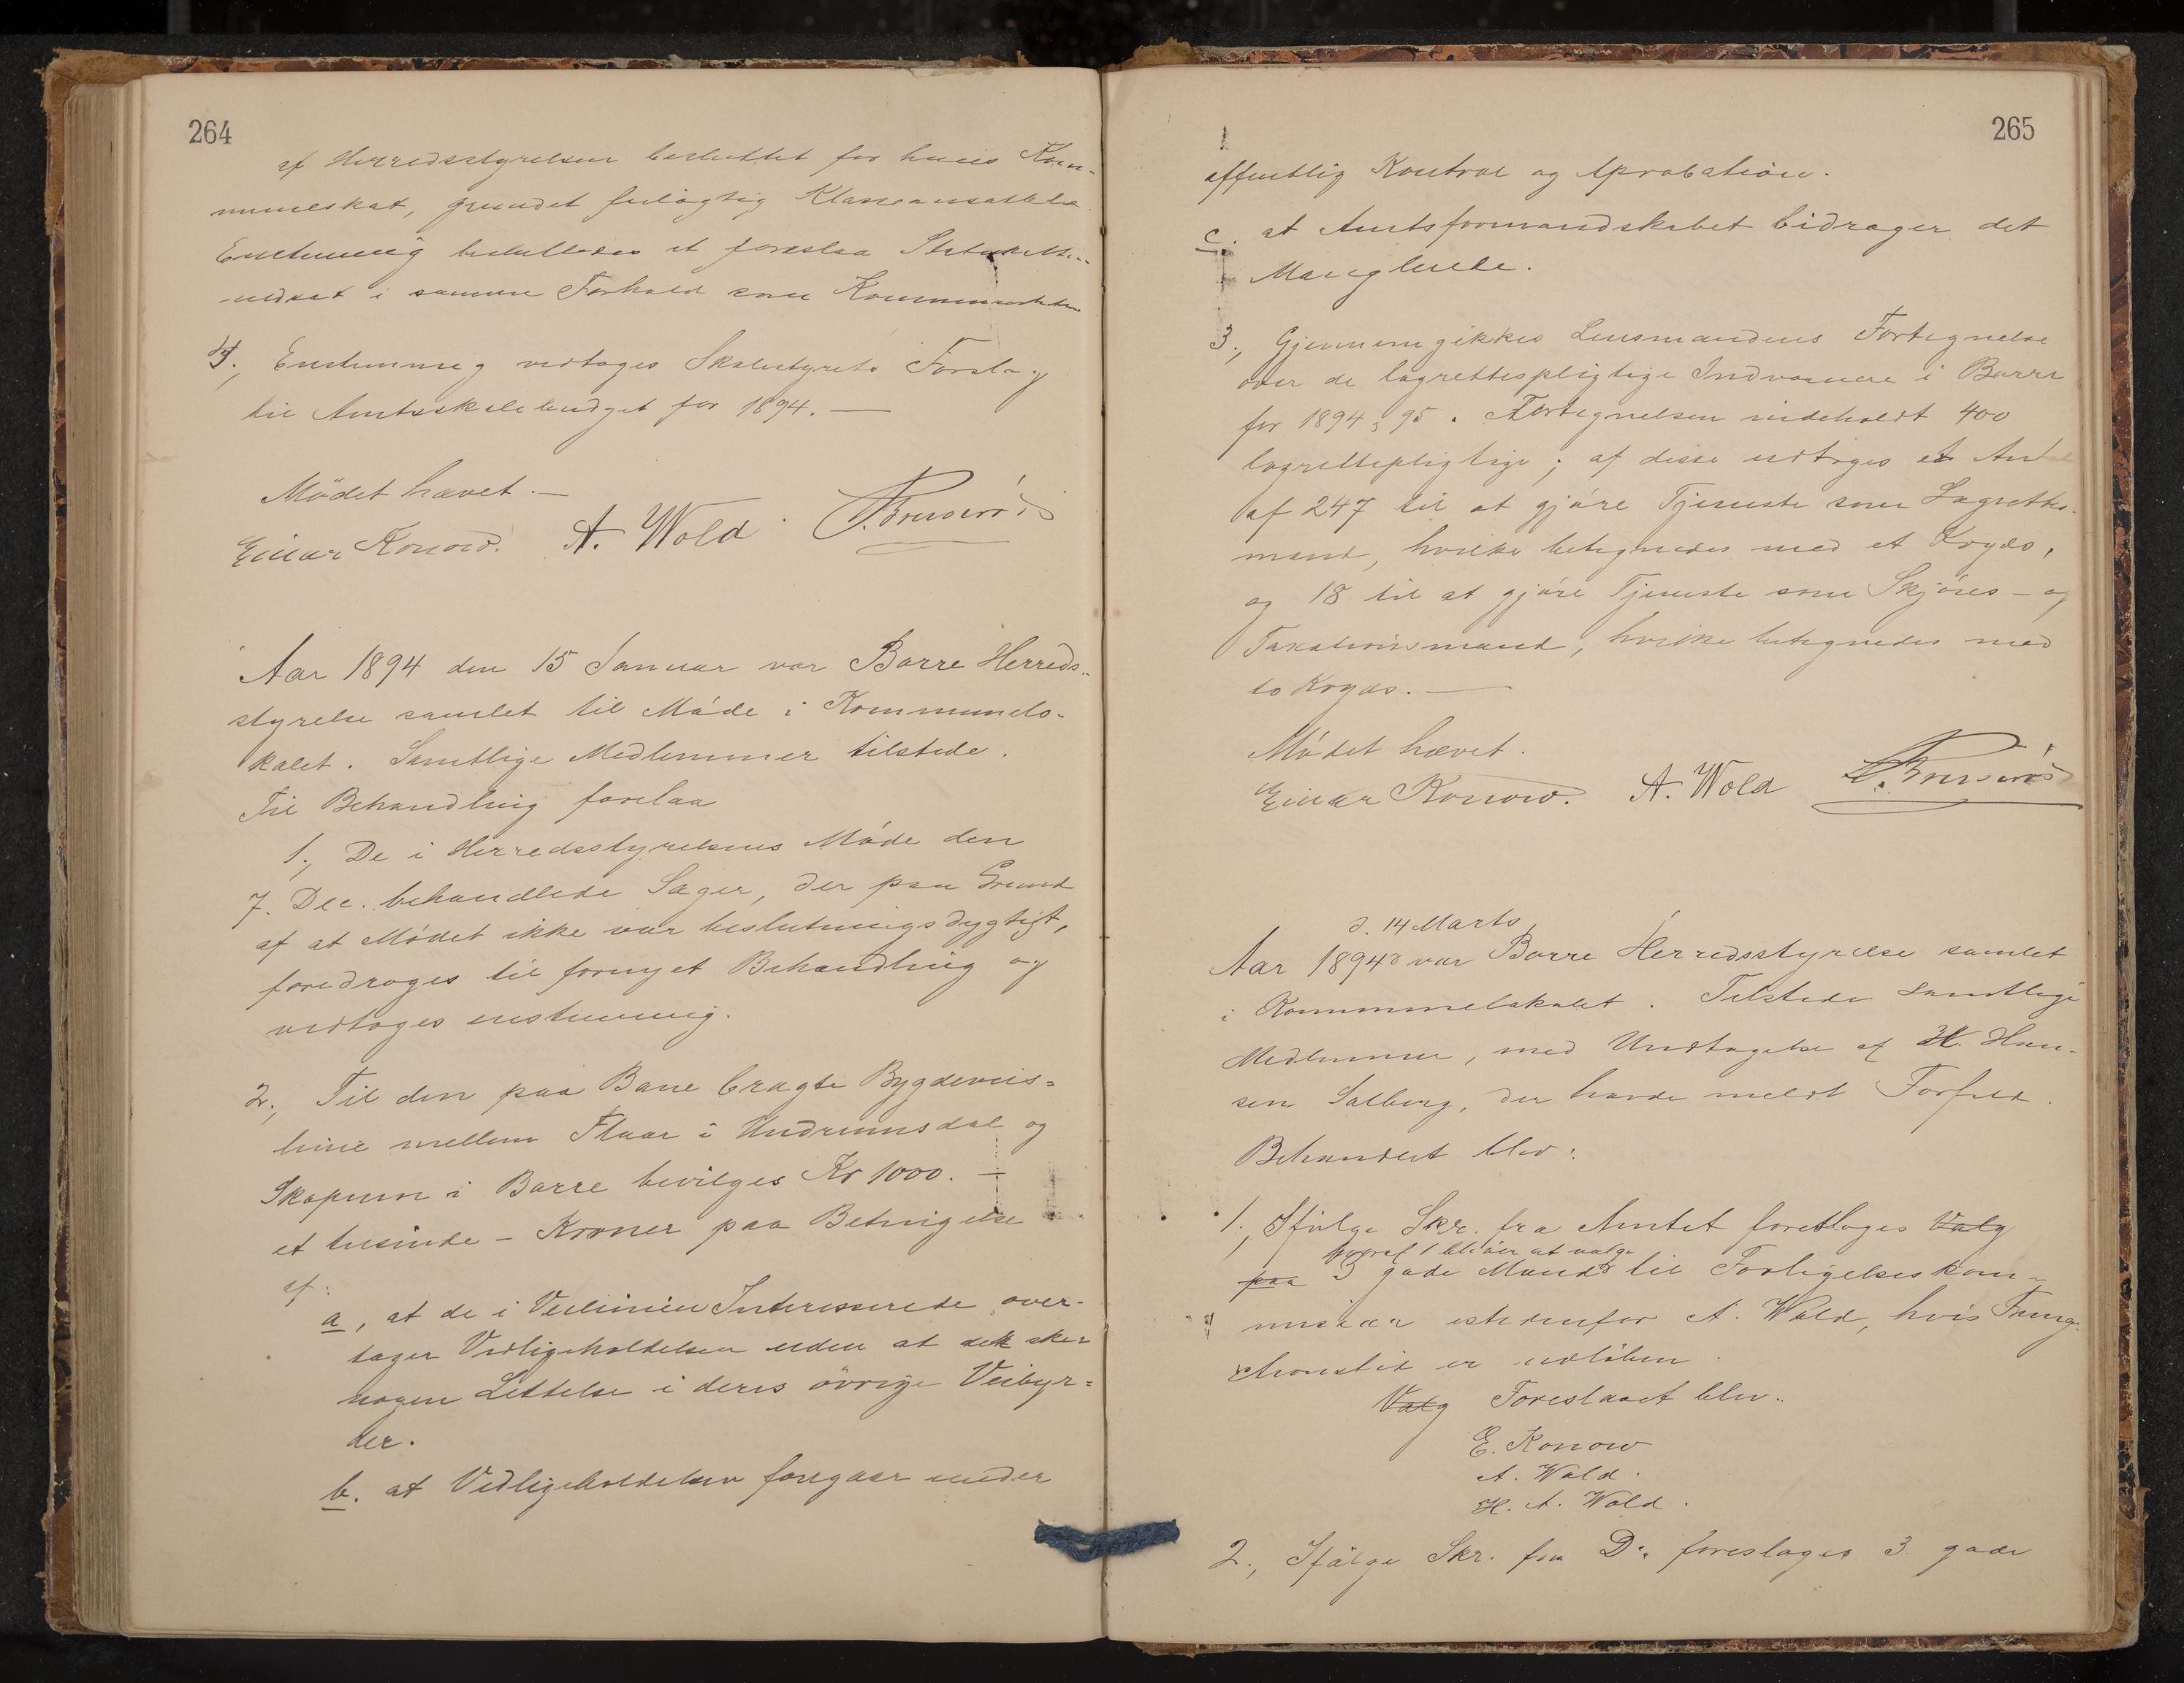 264
af Herredsstyrelsen besluttet for hans Kom-
muneskat, grundet feilagtig Klasseansættelse
Enstemmig besluttedes at foreslaa Skatten
nedsat i samme Forhold som Kommuneskatten
4., Enstemmig vedtoges Skolestyrets Forslag
til Amtsskolebudget for 1894. —
Mödet hævet. —
Einar Konow. A. Wold.
Aar 1894 den 15 Januar var Borre Herreds-
styrelse samlet til Möde i Kommunelo-
kalet. Samtlige Medlemmer tilstede.
Til Behandling forelaa
1., De i Herredsstyrelsens Möde den
7. Dec. behandlede Sager, der paa Grund
af at Mödet ikke var beslutningsdygtigt,
foredroges til fornyet Behandling og
vedtoges enstemmig.
2., Til den paa Bane bragte Bygdeveis-
linie mellem Flaar i Undrumsdal og
Skopum i Borre bevilges Kr 1000. —
et tusinde - Kroner paa Betingelse
af:
a, at de i Veilinien Interesserede over-
tager Vedligeholdelsen uden at der sker
nogen Lettelse i deres övrige Veibyr-
der.
b. at Vedligeholdelsen foregaar under
265
offentlig Kontrol og Aprobation.
c. at Amtsformandskabet bidrager det
Manglende.
3., Gjennemgikkes Lensmandens Fortegnelse
over de lagrettespligtige Indvaanere i Borre
for 1894 & 95. Fortegnelsen indeholdt 400
lagrettepligtige; af disse udtoges et Antal
af 247 til at gjöre Tjeneste som Lagrettes-
mænd, hvilke betegnedes med et Kryds,
og 18 til at gjöre Tjeneste som Skjöns- og
Taxationsmænd, hvilke betegnedes med
to Kryds. —
Mödet hævet.
Einar Konow. A. Wold
d. 14 Marts
Aar 1894 var Borre Herredsstyrelse samlet
i Kommunelokalet. Tilstede samtlige
Medlemmer, med Undtagelse af H. Han-
sen Solberg, der havde meldt Forfald.
Behandlet blev:
1., Ifölge Skr. fra Amtet foretloges Valg
hvoraf 1 bliver at vælge
paa 3 gode Mænd til Forligelseskom-
missær istedenfor A. Wold, hvis Fung-
tionstid er udlöben.
Valg Foreslaaet blev:
E. Konow
A. Wold.
H. A. Wold.
2., Ifölge Skr. fra Do foresloges 3 gode